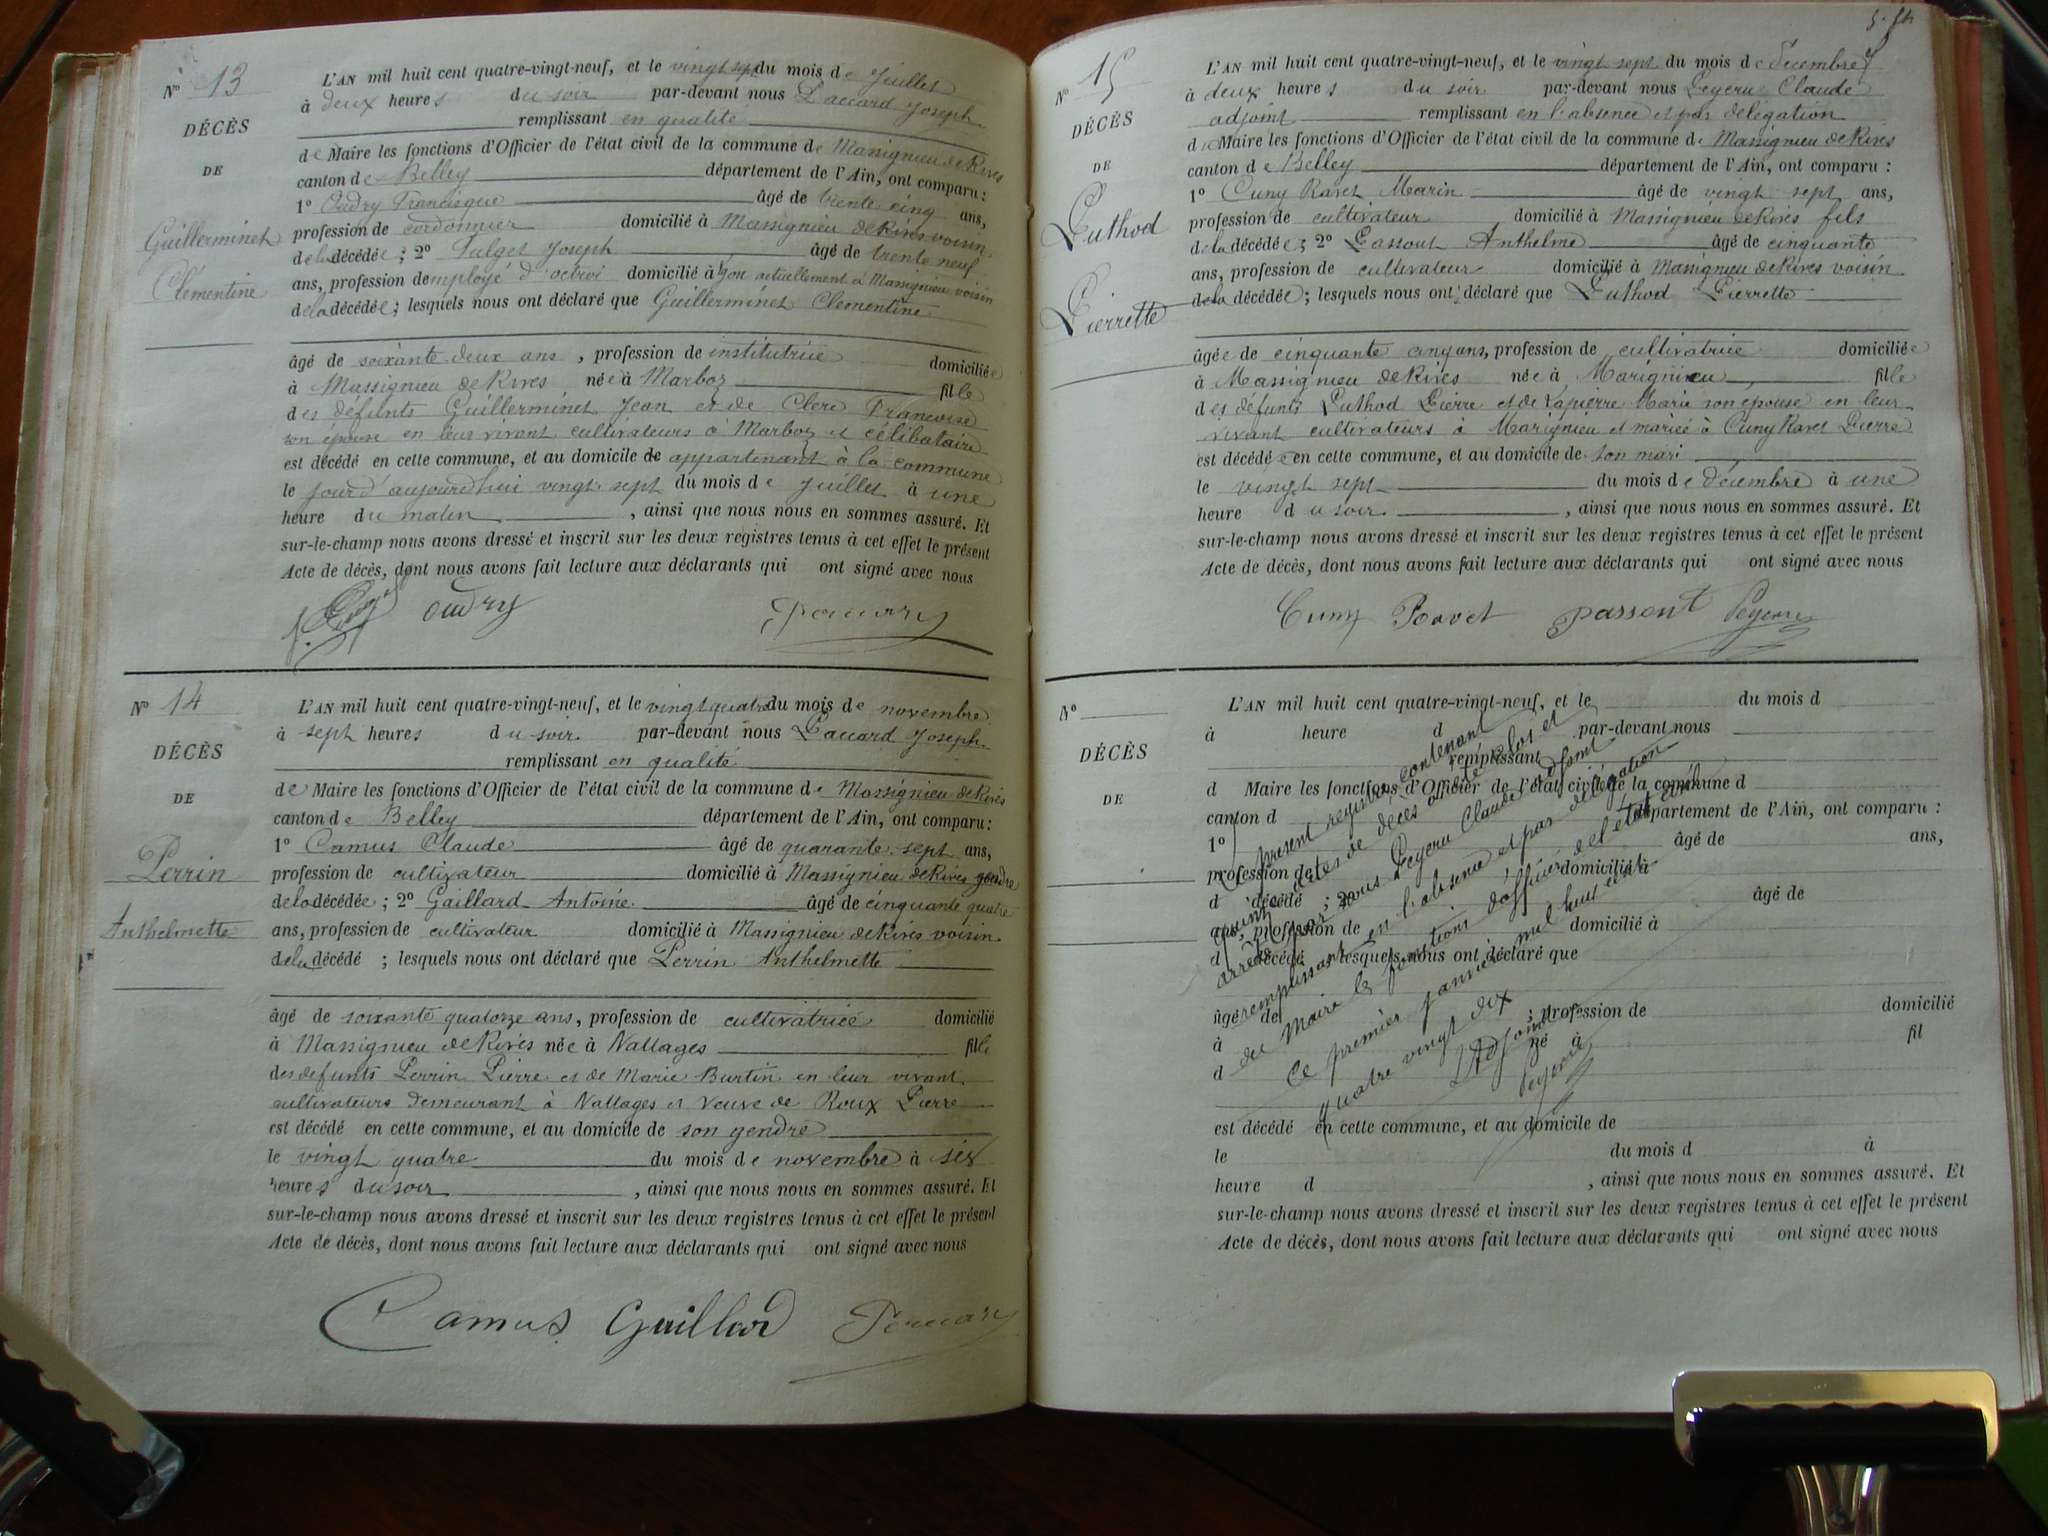 N° 13
DÉCÈS
DE
Guillerminet
Clémentine
L'AN mil huit cent quatre-vingt-neuf, et le vingt sept du mois de Juillet
à deux heures du soir par-devant nous Paccard Joseph
remplissant en qualité
de Maire les fonctions d'Officier de l'état civil de la commune de Massignieu de Rives
canton de Belley département de l'Ain, ont comparu :
1° Oudry Francisque âgé de trente cinq ans,
profession de cordonnier domicilié à Massignieu de Rives voisin
de la décédée ; 2° Joseph âgé de trente neuf
ans, profession d'employé d'octroi domicilié à Lyon actuellement à Massignieu voisin
de la décédée ; lesquels nous ont déclaré que Guillerminet Clémentine
âgé de soixante deux ans , profession de institutrice domiciliée
à Massignieu de Rives née à Marboz fille
des défunts Guillerminet Jean et de Clerc Françoise
son épouse en leur vivant cultivateurs à Marboz et célibataire
est décédé en cette commune, et au domicile de appartenant à la commune
le jour d'aujourd'hui vingt sept du mois de Juillet à une
heure du matin , ainsi que nous nous en sommes assuré. Et
sur-le-champ nous avons dressé et inscrit sur les deux registres tenus à cet effet le présent
Acte de décès, dont nous avons fait lecture aux déclarants qui ont signé avec nous
oudry Paccard
N° 14
DÉCÈS
DE
Perrin
Anthelmette
L'AN mil huit cent quatre-vingt-neuf, et le vingt quatre du mois de novembre
à sept heures du soir par-devant nous Paccard Joseph
remplissant en qualité
de Maire les fonctions d'Officier de l'état civil de la commune de Massignieu de Rives
canton de Belley département de l'Ain, ont comparu :
1° Camus Claude âgé de quarante sept ans,
profession de cultivateur domicilié à Massignieu de Rives gendre
de la décédée ; 2° Gaillard Antoine âgé de cinquante quatre
ans, profession de cultivateur domicilié à Massignieu de Rives voisin
de la décédé ; lesquels nous ont déclaré que Perrin Anthelmette
âgé de soixante quatorze ans, profession de cultivatrice domicilié
à Massignieu de Rives née à Nattages fille
des defunts Perrin Pierre et de Marie Burtin en leur vivant
cultivateurs demeurant à Nattages et veuve de Roux Pierre
est décédé en cette commune, et au domicile de son gendre
le vingt quatre du mois de novembre à six
heures du soir , ainsi que nous nous en sommes assuré. Et
sur-le-champ nous avons dressé et inscrit sur les deux registres tenus à cet effet le présent
Acte de décès, dont nous avons fait lecture aux déclarants qui ont signé avec nous
Camus Gaillard Paccard
N° 15
DÉCÈS
DE
Puthod
Pierrette
L'AN mil huit cent quatre-vingt-neuf, et le vingt sept du mois de décembre
à deux heures du soir par-devant nous Peyeru Claude
adjoint remplissant en l'absence et par délégation
du Maire les fonctions d'Officier de l'état civil de la commune de Massignieu de Rives
canton de Belley département de l'Ain, ont comparu :
1° Cuny Ravet Marin âgé de vingt sept ans,
profession de cultivateur domicilié à Massignieu de Rives fils
de la décédée ; 2° Passout Anthelme âgé de cinquante
ans, profession de cultivateur domicilié à Massignieu de Rives voisin
de la décédée ; lesquels nous ont déclaré que Puthod Pierrette
âgée de cinquante cinq ans, profession de cultivatrice domiciliée
à Massignieu de Rives née à Marignieu fille
des défunts Puthod Pierre et de Lapierre Marie son épouse en leur
vivant cultivateurs à Marignieu et mariée à Cuny Ravet Pierre
est décédée en cette commune, et au domicile de son mari
le vingt sept du mois de décembre à une
heure du soir , ainsi que nous nous en sommes assuré. Et
sur-le-champ nous avons dressé et inscrit sur les deux registres tenus à cet effet le présent
Acte de décès, dont nous avons fait lecture aux déclarants qui ont signé avec nous
Cuny Ravet passout Peyeru
N°
DÉCÈS
DE
L'AN mil huit cent quatre-vingt-neuf, et le du mois d
à heure d par-devant nous
remplissant
d Maire les fonctions d'Officier de l'état civil de la commune d
canton d département de l'Ain, ont comparu :
1° âgé de ans,
profession de domicilié à
d décédé ; 2° âgé de
ans, profession de domicilié à
d décédé lesquels nous ont déclaré que
âgé de ; profession de domicilié
à né à fil
d
est décédé en cette commune, et au domicile de
le du mois d à
heure d , ainsi que nous nous en sommes assuré. Et
sur-le-champ nous avons dressé et inscrit sur les deux registres tenus à cet effet le présent
Acte de décès, dont nous avons fait lecture aux déclarants qui ont signé avec nous
Le présent registre contenant
quinze actes de décès a été clos et
arrêté par nous Peyeru Claude adjoint
remplissant en l'absence et par délégation
du Maire les fonctions d'officier de l'état civil
ce premier janvier mil huit cent
quatre vingt dix
L'Adjoint
Peyeru